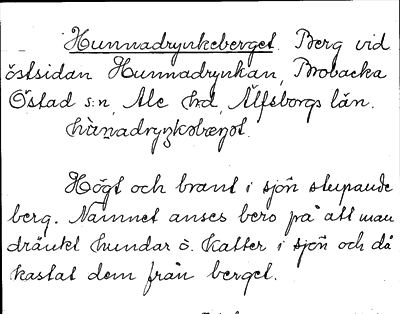 Hunnadrynkeberget. Berg vid
östsidan Hunnadrynkan, Brobacka
Östad s:n, Ale hd, Älfsborgs län.
Högt och brant i sjön stupande
berg. Namnet anses bero på att man
dränkt hundar o. katter i sjön och då
kastat dem från berget.